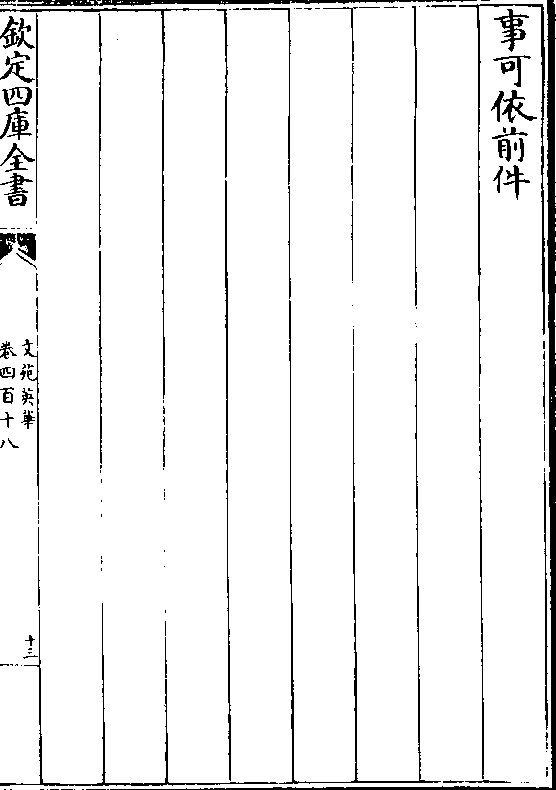 事可依前件
欽定四庫全書
文苑英華
卷四百十八
十三